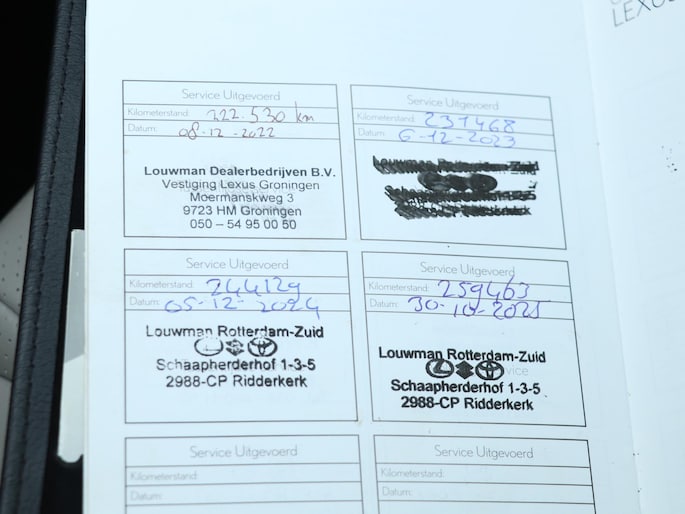 LEXUS
Service Uitgevoerd
Kilometerstand: 222.530 km
Datum: 08-12-2022
Louwman Dealerbedrijven B.V.
Vestiging Lexus Groningen
Moermanskweg 3
9723 HM Groningen
050 – 54 95 00 50
Service Uitgevoerd
Kilometerstand: 237468
Datum: 6-12-2023
Louwman Rotterdam-Zuid
Schaapherderhof 1-3-5
2988-CP Ridderkerk
Service Uitgevoerd
Kilometerstand: 244129
Datum: 05-12-2024
Louwman Rotterdam-Zuid
Schaapherderhof 1-3-5
2988-CP Ridderkerk
Service Uitgevoerd
Kilometerstand: 259463
Datum: 30-10-2025
Louwman Rotterdam-Zuid
Schaapherderhof 1-3-5
2988-CP Ridderkerk
Service Uitgevoerd
Kilometerstand:
Datum:
Service Uitgevoerd
Kilometerstand:
Datum: